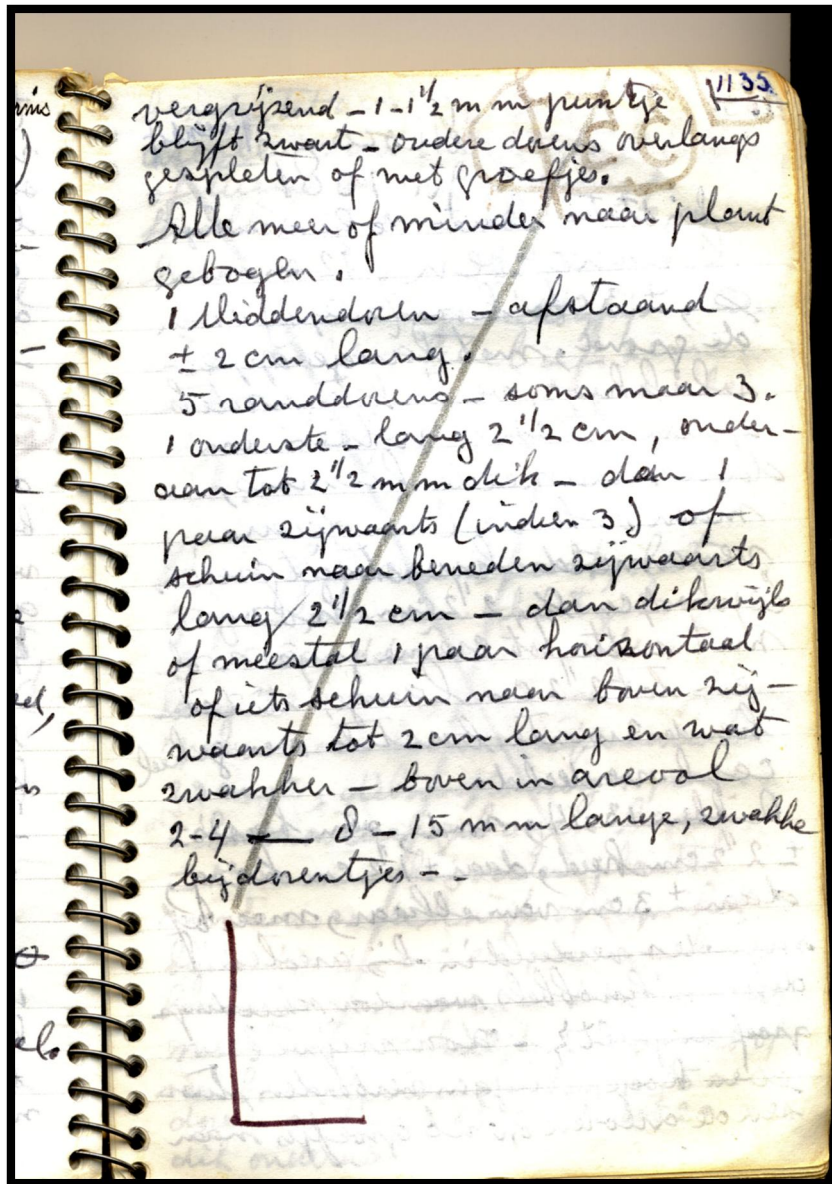 1135
vergrijzend – 1-1 1/2 mm puntje
blijft zwart – oudere dorens overlangs
gespleten of met groefjes.
Alle meer of minder naar plant
gebogen.
1 Middendoren – afstaand
± 2 cm lang.
5 randdorens – soms maar 3.
1 onderste – lang 2 1/2 cm, onder-
aan tot 2 1/2 mm dik – dan 1
paar zijwaarts (indien 3) of
schuin naar beneden zijwaarts
lang 2 1/2 cm – dan dikwijls
of meestal 1 paar horizontaal
of iets schuin naar boven zij-
waarts tot 2 cm lang en wat
zwakker – boven in areool
2-4 — 8 – 15 mm lange, zwakke
bijdorentjes – .